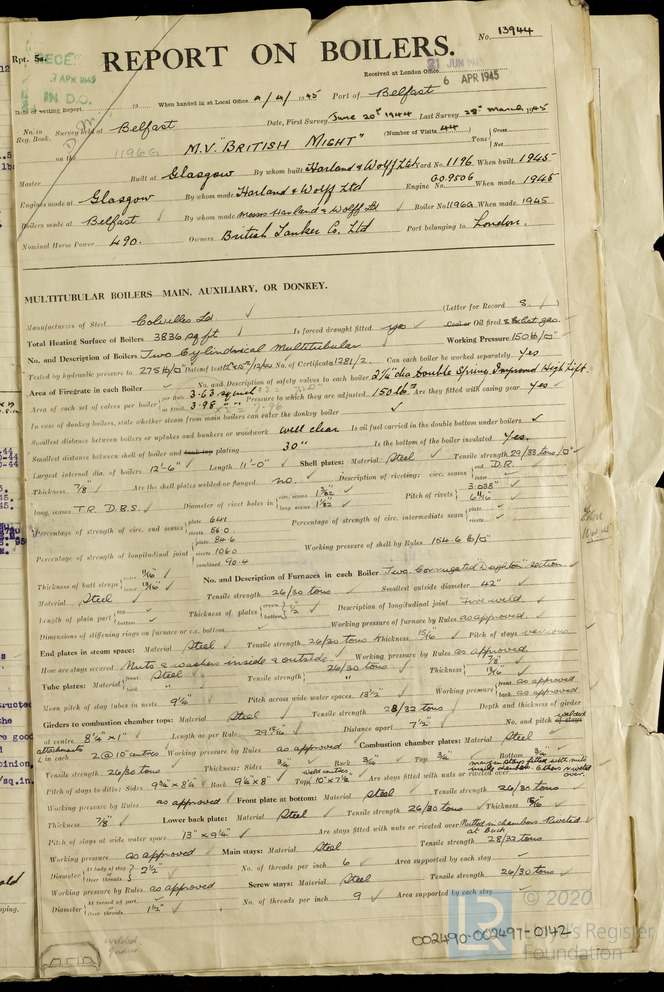 No. 13944
Rpt. 5a.
RECE
7 APR 1945
IN D.O.
REPORT ON BOILERS.
21 JUN 1945
Received at London Office 6 APR 1945
Date of writing Report 19 When handed in at Local Office 4/4/1945 Port of Belfast
No. in Reg. Book. Survey held at Belfast Date, First Survey June 20th 1944 Last Survey 28th March 1945
on the 1196G M.V. "BRITISH MIGHT" (Number of Visits 44) Tons Gross Net
Master Built at Glasgow By whom built Harland & Wolff Ltd Yard No. 1196 When built 1945
Engines made at Glasgow By whom made Harland & Wolff Ltd Engine No. G09506 When made 1945
Boilers made at Belfast By whom made Messrs Harland & Wolff Ltd Boiler No. 1196G When made 1945
Nominal Horse Power 490. Owners British Tanker Co. Ltd Port belonging to London.
MULTITUBULAR BOILERS MAIN, AUXILIARY, OR DONKEY.
Manufacturers of Steel Colvilles Ld (Letter for Record S. )
Total Heating Surface of Boilers 3836 sq ft Is forced draught fitted yes Coal or Oil fired & Exhst gas.
No. and Description of Boilers Two Cylindrical Multitubular Working Pressure 150 lb/□"
Tested by hydraulic pressure to 275 lb/□" Date of test No. of Certificate 1281/2. Can each boiler be worked separately yes
Area of Firegrate in each Boiler No. and Description of safety valves to each boiler 2¼" dia Double Spring Improved High Lift.
Area of each set of valves per boiler per Rule 3.63 sq inch as fitted 3.98 " " Pressure to which they are adjusted 150 lbs Are they fitted with easing gear yes
In case of donkey boilers, state whether steam from main boilers can enter the donkey boiler
Smallest distance between boilers or uptakes and bunkers or woodwork well clear Is oil fuel carried in the double bottom under boilers
Smallest distance between shell of boiler and tank top plating 30" Is the bottom of the boiler insulated yes.
Largest internal dia. of boilers 12'-6" Length 11'-0" Shell plates: Material Steel Tensile strength 29/33 tons/□"
Thickness 7/8" Are the shell plates welded or flanged no. Description of riveting: circ. seams end D.R. inter.
long. seams T.R. D.B.S. Diameter of rivet holes in circ. seams 1 3/32 long. seams 1 1/32 Pitch of rivets 3.038" 6 11/16
Percentage of strength of circ. end seams plate 64.1 rivets 56.0 Percentage of strength of circ. intermediate seam plate rivets
Percentage of strength of longitudinal joint plate 84.6 rivets 106.0 combined 90.4 Working pressure of shell by Rules 154.6 lb/□"
Thickness of butt straps outer 11/16 inner 13/16 No. and Description of Furnaces in each Boiler Two Corrugated "Deighton" section
Material Steel Tensile strength 26/30 tons Smallest outside diameter 42"
Length of plain part top bottom Thickness of plates crown bottom ½" Description of longitudinal joint Fire weld
Dimensions of stiffening rings on furnace or c.c. bottom Working pressure of furnace by Rules as approved
End plates in steam space: Material Steel Tensile strength 26/30 tons Thickness 15/16 Pitch of stays various
How are stays secured Nuts & washers inside & outside Working pressure by Rules as approved
Tube plates: Material front Steel back " Tensile strength 26/30 tons " Thickness 7/8" 13/16
Mean pitch of stay tubes in nests 9¼" Pitch across wide water spaces 13½" Working pressure front as approved back as approved
Girders to combustion chamber tops: Material Steel Tensile strength 28/32 tons Depth and thickness of girder
at centre 8¼" x 1" Length as per Rule Distance apart 7½" No. and pitch of stays welded
attachments in each 2 @ 10" centres Working pressure by Rules as approved Combustion chamber plates: Material Steel
Tensile strength 26/30 tons Thickness: Sides ¾" Back ¾" Top ¾" Bottom ¾"
Pitch of stays to ditto: Sides 9¾" x 8¼" Back 9¼" x 8" Top weld centres 10" x 7½" Are stays fitted with nuts or riveted over margin stays fitted with nuts inside chamber. Others riveted over.
Working pressure by Rules as approved Front plate at bottom: Material Steel Tensile strength 26/30 tons
Thickness 7/8" Lower back plate: Material Steel Tensile strength 26/30 tons Thickness 13/16
Pitch of stays at wide water space 13" x 9¼" Are stays fitted with nuts or riveted over Nutted in chambers Riveted at Back.
Working pressure as approved Main stays: Material Steel Tensile strength 28/32 tons
Diameter At body of stay Over threads 2½" No. of threads per inch 6 Area supported by each stay
Working pressure by Rules as approved Screw stays: Material Steel Tensile strength 26/30 tons
Diameter At turned off part Over threads 1½" No. of threads per inch 9 Area supported by each stay
© 2020
Lloyd's Register
Foundation
002490-002497-0142